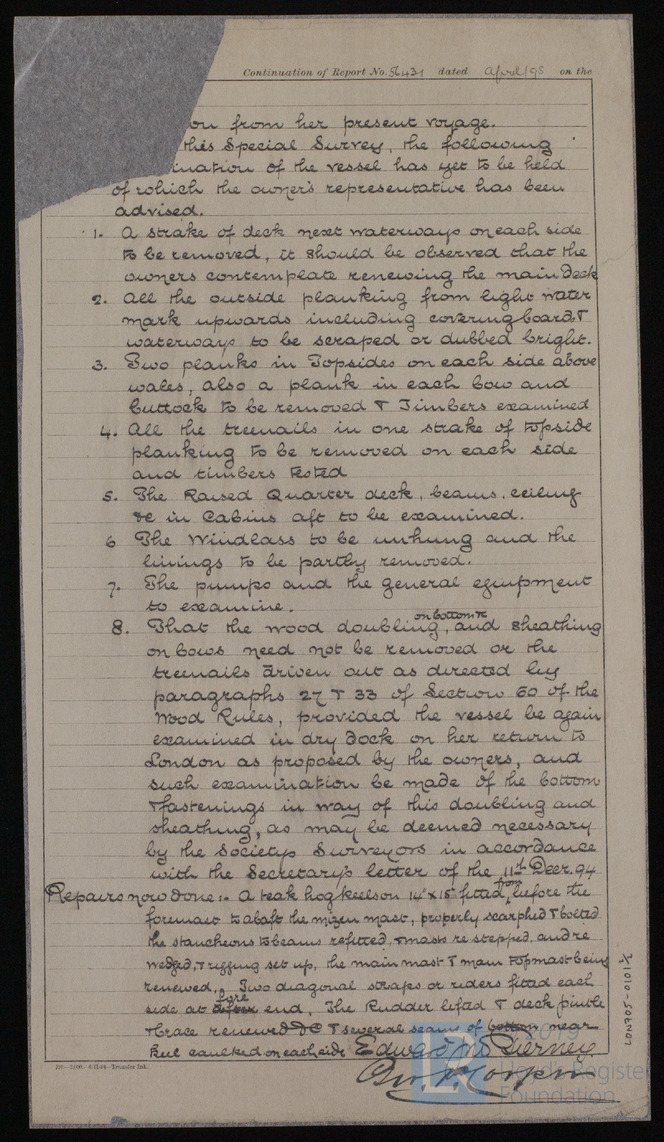 Continuation of Report No. 56431 dated April/95 on the
on from her present voyage.
this Special Survey, the following
ination of the vessel has yet to be held
of which the owner's representative has been
advised.
1. A strake of deck next waterways on each side
to be removed, it should be observed that the
owners contemplate renewing the main deck
2. All the outside planking from light water
mark upwards including coveringboards &
waterways to be scraped or dubbed bright.
3. Two planks in Topsides on each side above
wales, also a plank in each bow and
buttock to be removed & Timbers examined
4. All the treenails in one strake of topside
planking to be removed on each side
and timbers tested
5. The Raised Quarter deck, beams, ceiling
&c in Cabins aft to be examined.
6 The Windlass to be unhung and the
linings to be partly removed.
7. The pumps and the general equipment
to examine.
on bottom &c
8. That the wood doubling, and sheathing
on bows need not be removed or the
treenails driven out as directed by
paragraphs 27 & 33 of Section 60 of the
Wood Rules, provided the vessel be again
examined in dry dock on her return to
London as proposed by the owners, and
such examination be made of the bottom
& fastenings in way of this doubling and
sheathing, as may be deemed necessary
by the Society's Surveyors in accordance
with the Secretary's letter of the 11th Decr. 94
Repairs now done:- A teak hog keelson 14" x 15" fitted from before the
foremast to abaft the mizen mast, properly scarphed & bolted
the stancheons to beams refitted, & masts re stepped, and re
wedged, & rigging set up, the main mast & main topmast being
renewed. Two diagonal straps or riders fitted each
side at fore end, The Rudder lifted & deck pintle
& brace renewed &c & several seams of bottom near
keel caulked on each side
LON705-0101 1/2
Transfer Ink.
© 2019
Lloyd's Register
Foundation